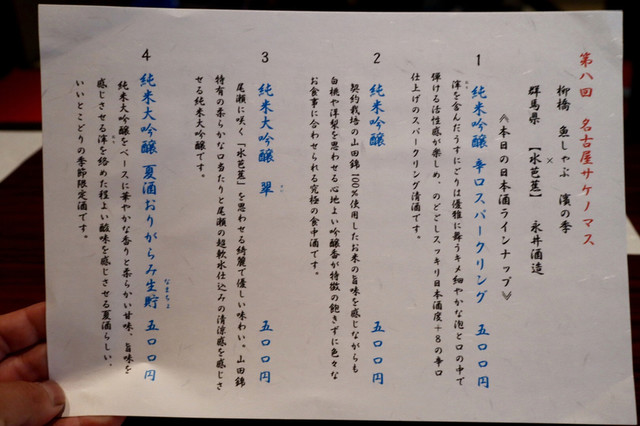 第八回 名古屋サケノマス
柳橋 魚しゃぶ 濱の季
×
群馬県 【水芭蕉】 永井酒造
≪本日の日本酒ラインナップ≫
1 純米吟醸 辛口スパークリング 五〇〇円
滓を含んだうすにごりは優雅に舞うキメ細やかな泡と口の中で
弾ける活性感が楽しめ、のどごしスッキリ日本酒度+8の辛口
仕上げのスパークリング清酒です。
2 純米吟醸 五〇〇円
契約栽培の山田錦100%使用したお米の旨味を感じながらも
白桃や洋梨を思わせる心地よい吟醸香が特徴の飽きずに色々な
お食事に合わせられる究極の食中酒です。
3 純米大吟醸 翠 五〇〇円
尾瀬に咲く「水芭蕉」を思わせる綺麗で優しい味わい。山田錦
特有の柔らかな口当たりと尾瀬の超軟水仕込みの清涼感を感じさ
せる純米大吟醸です。
4 純米大吟醸 夏酒おりがらみ生貯 五〇〇円
なまちょ
純米大吟醸をベースに華やかな香りと柔らかい甘味、旨味を
感じさせる滓を絡めた程よい酸味を感じさせる夏酒らしい、
いいとこどりの季節限定酒です。